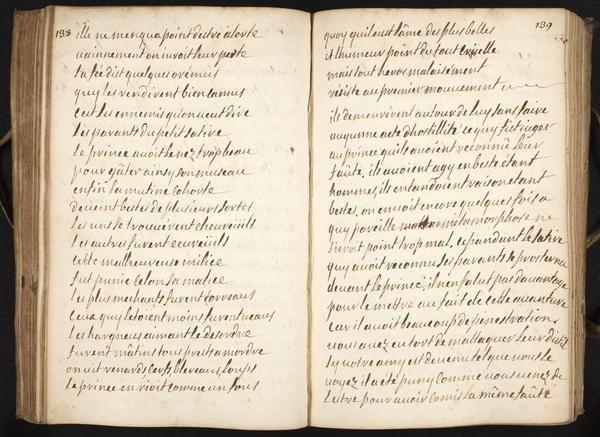 138
ille ne menqua point destre alorte
vainnement on iuroit leur perte
la fée dist quelques orémus
quy les rendirent bien camus
cent les ennemis qu'on veut dire
les parants du petit satire
le prince avoit le nez trop beau
pour gâter ainsy son museau
enfin la mutine cohorte
devient beste de plusieurs sortes
les uns se trouverent chevreüils
les autres furent ecureüils
cette malheureuse milice
fut punie celon sa malice
les plus mechants furent torreaux
ceux quy letoient moins furent veaux
les hargneux aimant le desordre
furent mâtins tous prets a mordre
on vit renards, cerfs, blereaux, loups
le prince en rioit comme un fous
139
quoy quil eust l'âme des plus belles
et l'humeur point du tout cruelle
mais tout heros malaisement
resiste au premier mouvement
ils demeurèrent autour de luy sans faire
auqunne acte d'hostillité ce quy fict iuger
au prince quils avoient reconnü leur
faûte, ils avoient agy en beste etant
hommes, ils entandoient raison etant
bestes, on en voit encore quelques fois a
quy pareille metamorphose ne
sieroit point trop mal, cepandant le satire
quy avoit reconnu ses parants se prosterna
devant le prince, il n'en falut pas davantage
pour le mettre au fait de cette avanture
car il avoit beaucoup de penestration
vous avez eu tort de m'attaquer leur dit il
sy votre amy est devenu tel que vous le
voyez il a eté puny comme vous venez de
l'estre pour avoir comis la même faûte